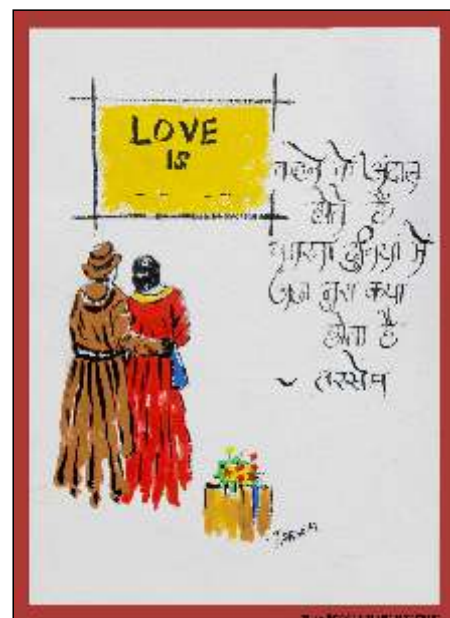 LOVE
IS
कहने के अंदाज
होते है
दुनिया में
बुरा क्या
होता है
~ तरसेम